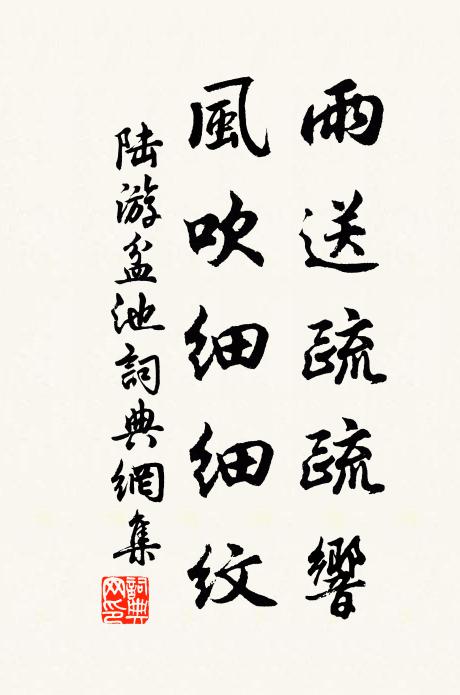 雨送疏疏響
風吹細細紋
陸游盆池詞典網集
詞典網印